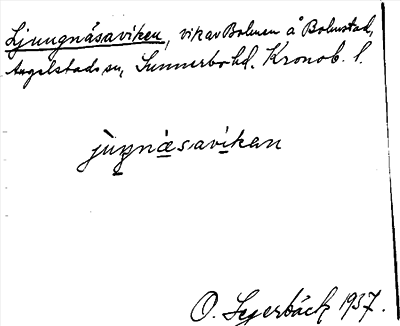 Ljungnäsaviken, vik av Bolmen å Bolmstad,
Angelstads sn, Sunnerbo hd. Kronob. l.
jùŋnä̀savíkan
O. Lyerbäck 1937.